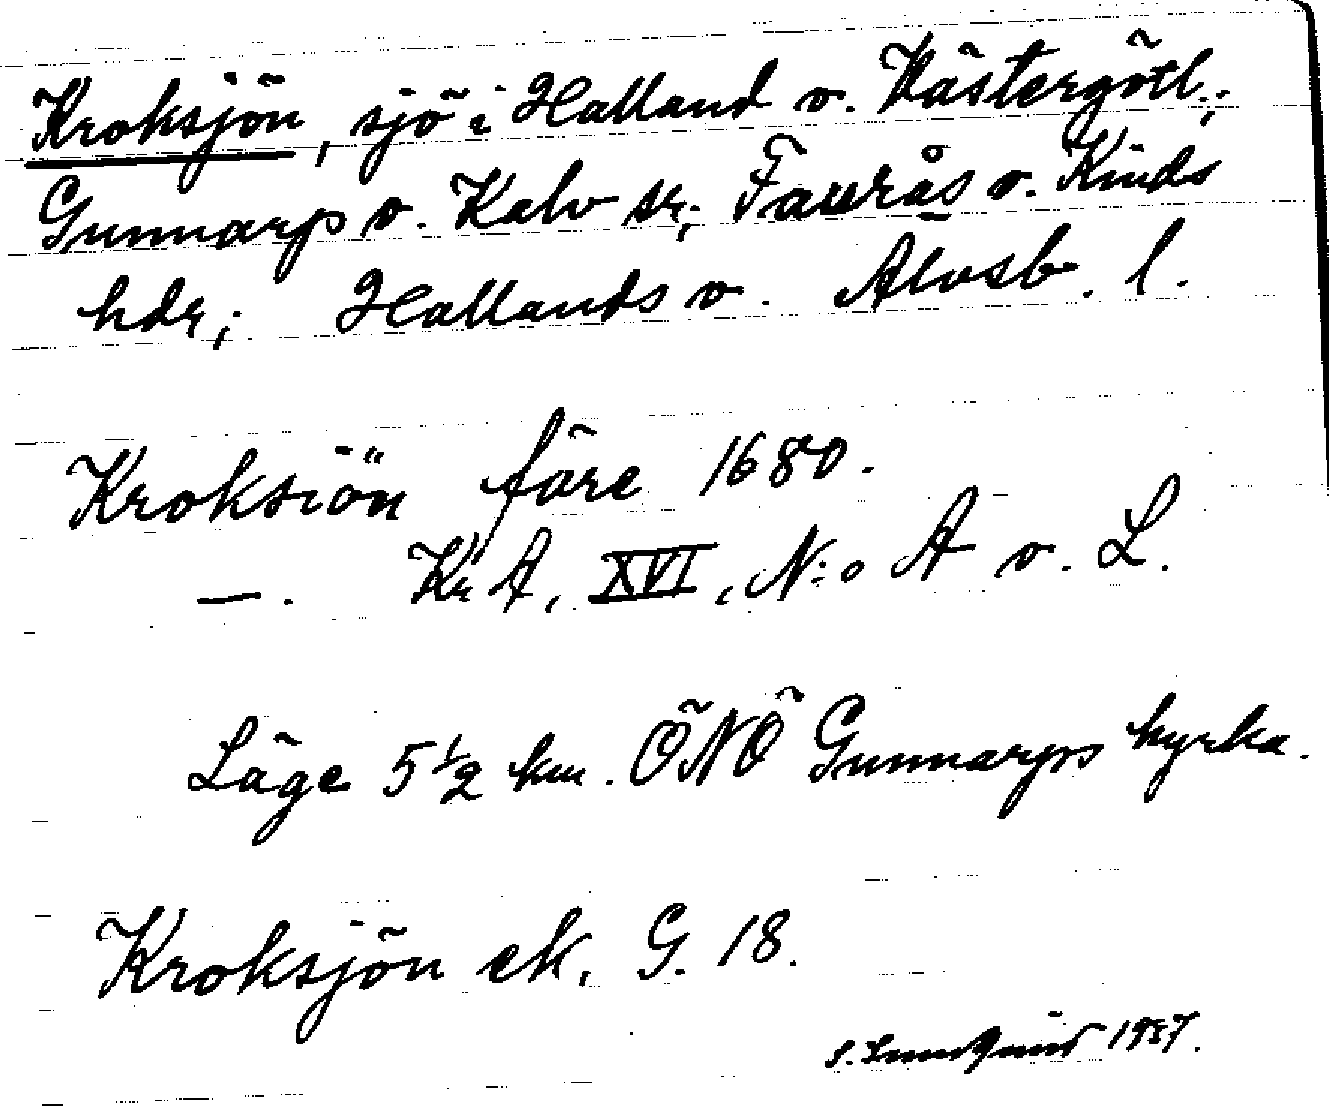 Kroksjön, sjö i Halland o. Västergötl.;
Gunnarp o. Kalv sr; Faurås o. Kinds
hdr; Hallands o. Älvsb. l.
Kroksiön före 1680.
—. KrA, XVI, N:o A o. L.
Läge 5 1/2 km. ÖNÖ Gunnarps kyrka.
Kroksjön ek. G. 18.
S. Lundquist 1937.